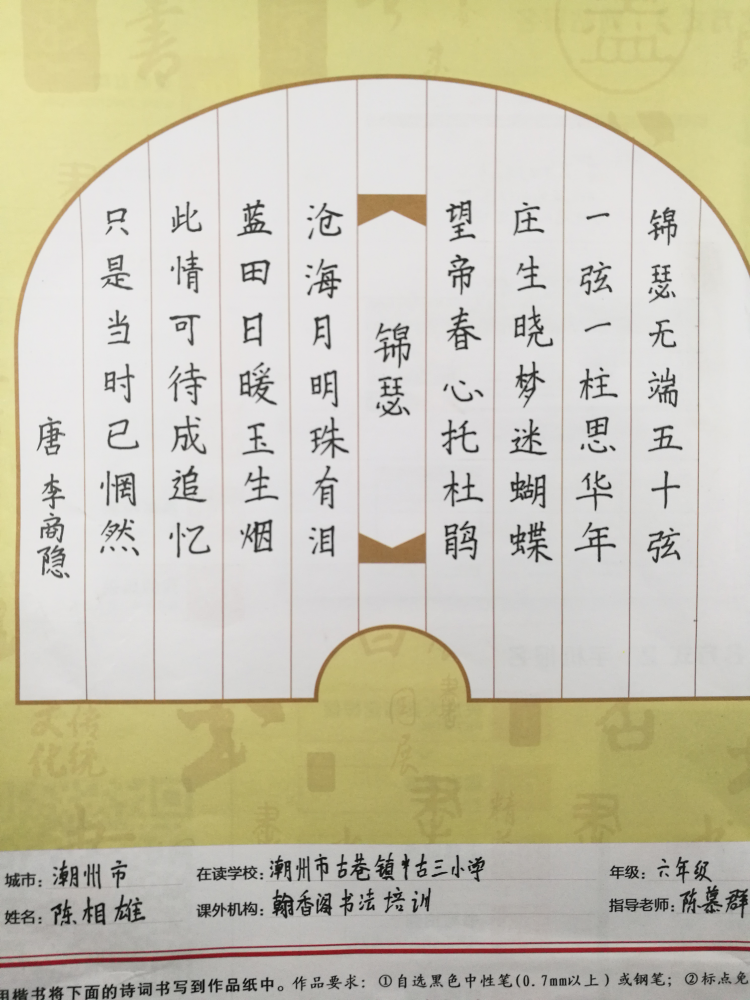 锦瑟无端五十弦
一弦一柱思华年
庄生晓梦迷蝴蝶
望帝春心托杜鹃
锦瑟
沧海月明珠有泪
蓝田日暖玉生烟
此情可待成追忆
只是当时已惘然
唐 李商隐
传统
文化
城市：潮州市 在读学校：潮州市古巷镇古三小学 年级：六年级
姓名：陈相雄 课外机构：翰香阁书法培训 指导老师：陈慕群
用楷书将下面的诗词书写到作品纸中。作品要求：①自选黑色中性笔(0.7mm以上)或钢笔；②标点免